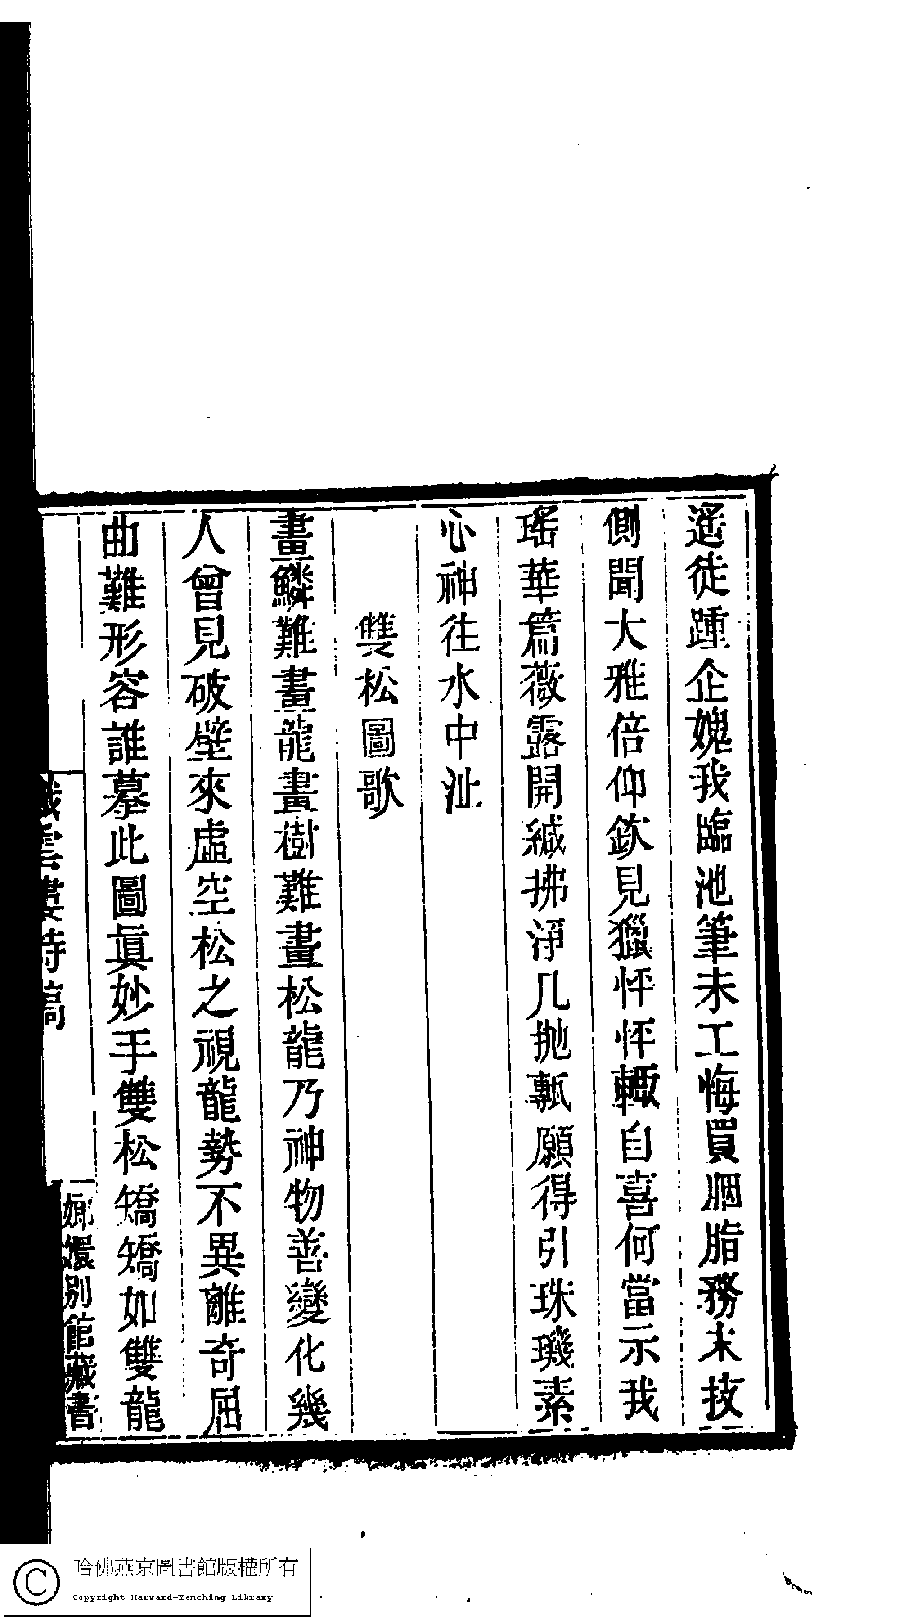 遙徒踵企媿我臨池筆未工悔買胭脂務末技
側聞大雅倍仰欽見獵怦怦輙自喜何當示我
瑤華篇薇露開緘拂淨几拋甎願得引珠璣素
心神往水中沚
雙松圖歌
畫鱗難畫龍畫樹難畫松龍乃神物善變化幾
人曾見破壁來虛空松之視龍勢不異離奇屈
曲難形容誰摹此圖眞妙手雙松矯矯如雙龍
織雲樓詩稿
嫏嬛別館藏書
哈佛燕京圖書館版權所有
Copyright Harvard-Yenching Library